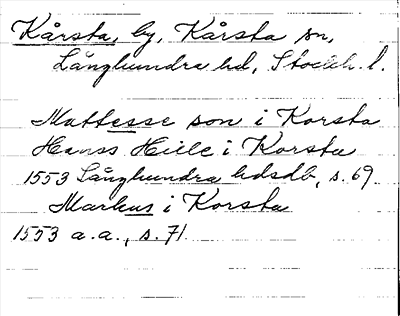 Kårsta, by, Kårsta sn,
Långhundra hd, Stockh. l.
Mattesse son i Korsta
Hanss Hille i Korsta
1553 Långhundra hdsdb, s. 69.
Markus i Korsta
1553 a.a., s. 71